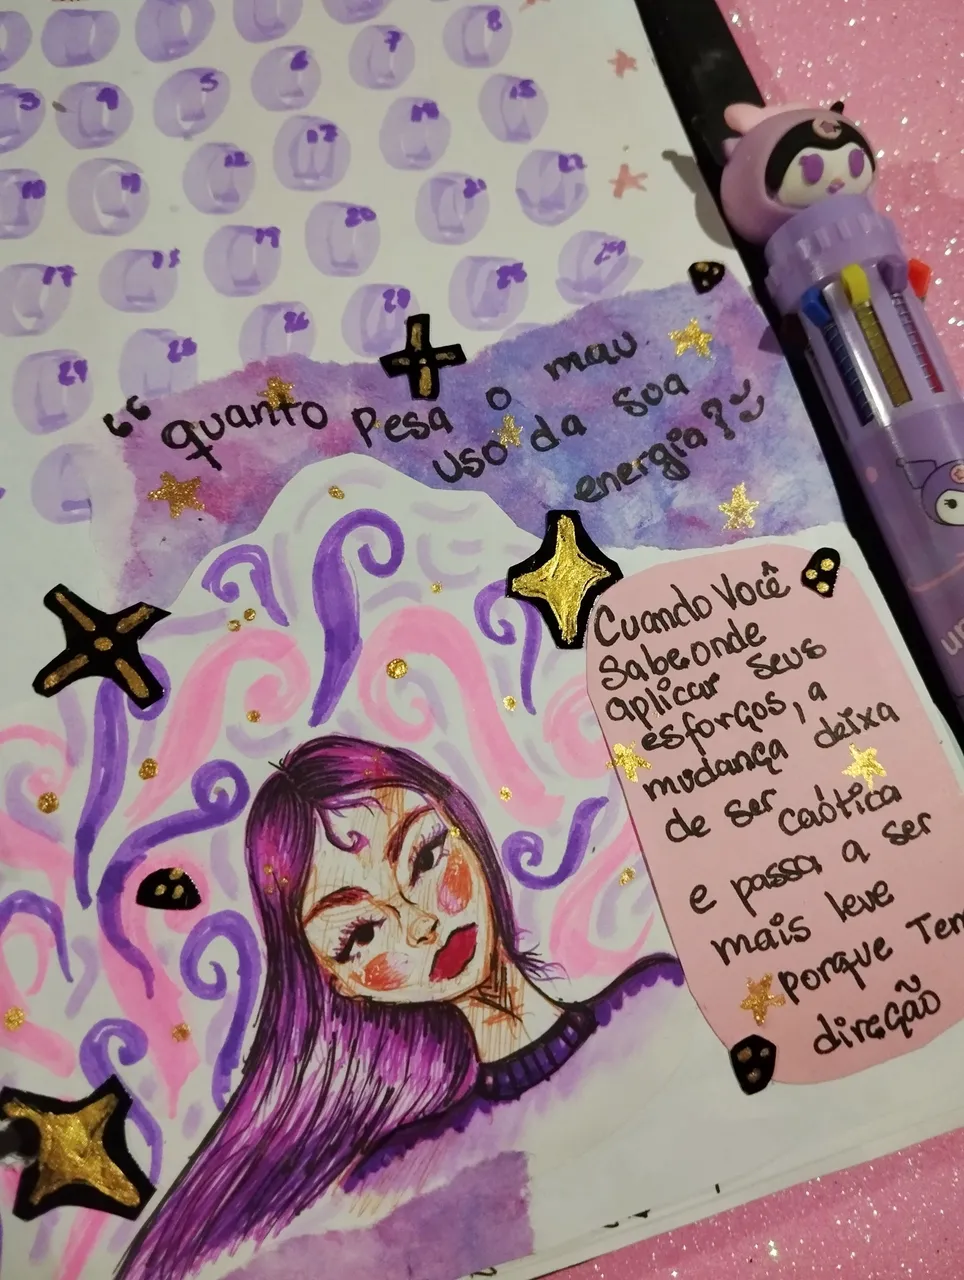 7
8
5
6
14
15
9
12
13
21
22
19
20
17
28
29
26
“quanto pesa o mau
uso da sua
energia?
Cuando Você
Sabe onde
aplicar seus
esforços, a
mudança deixa
de ser caótica
e passa a ser
mais leve
porque Tem
direção